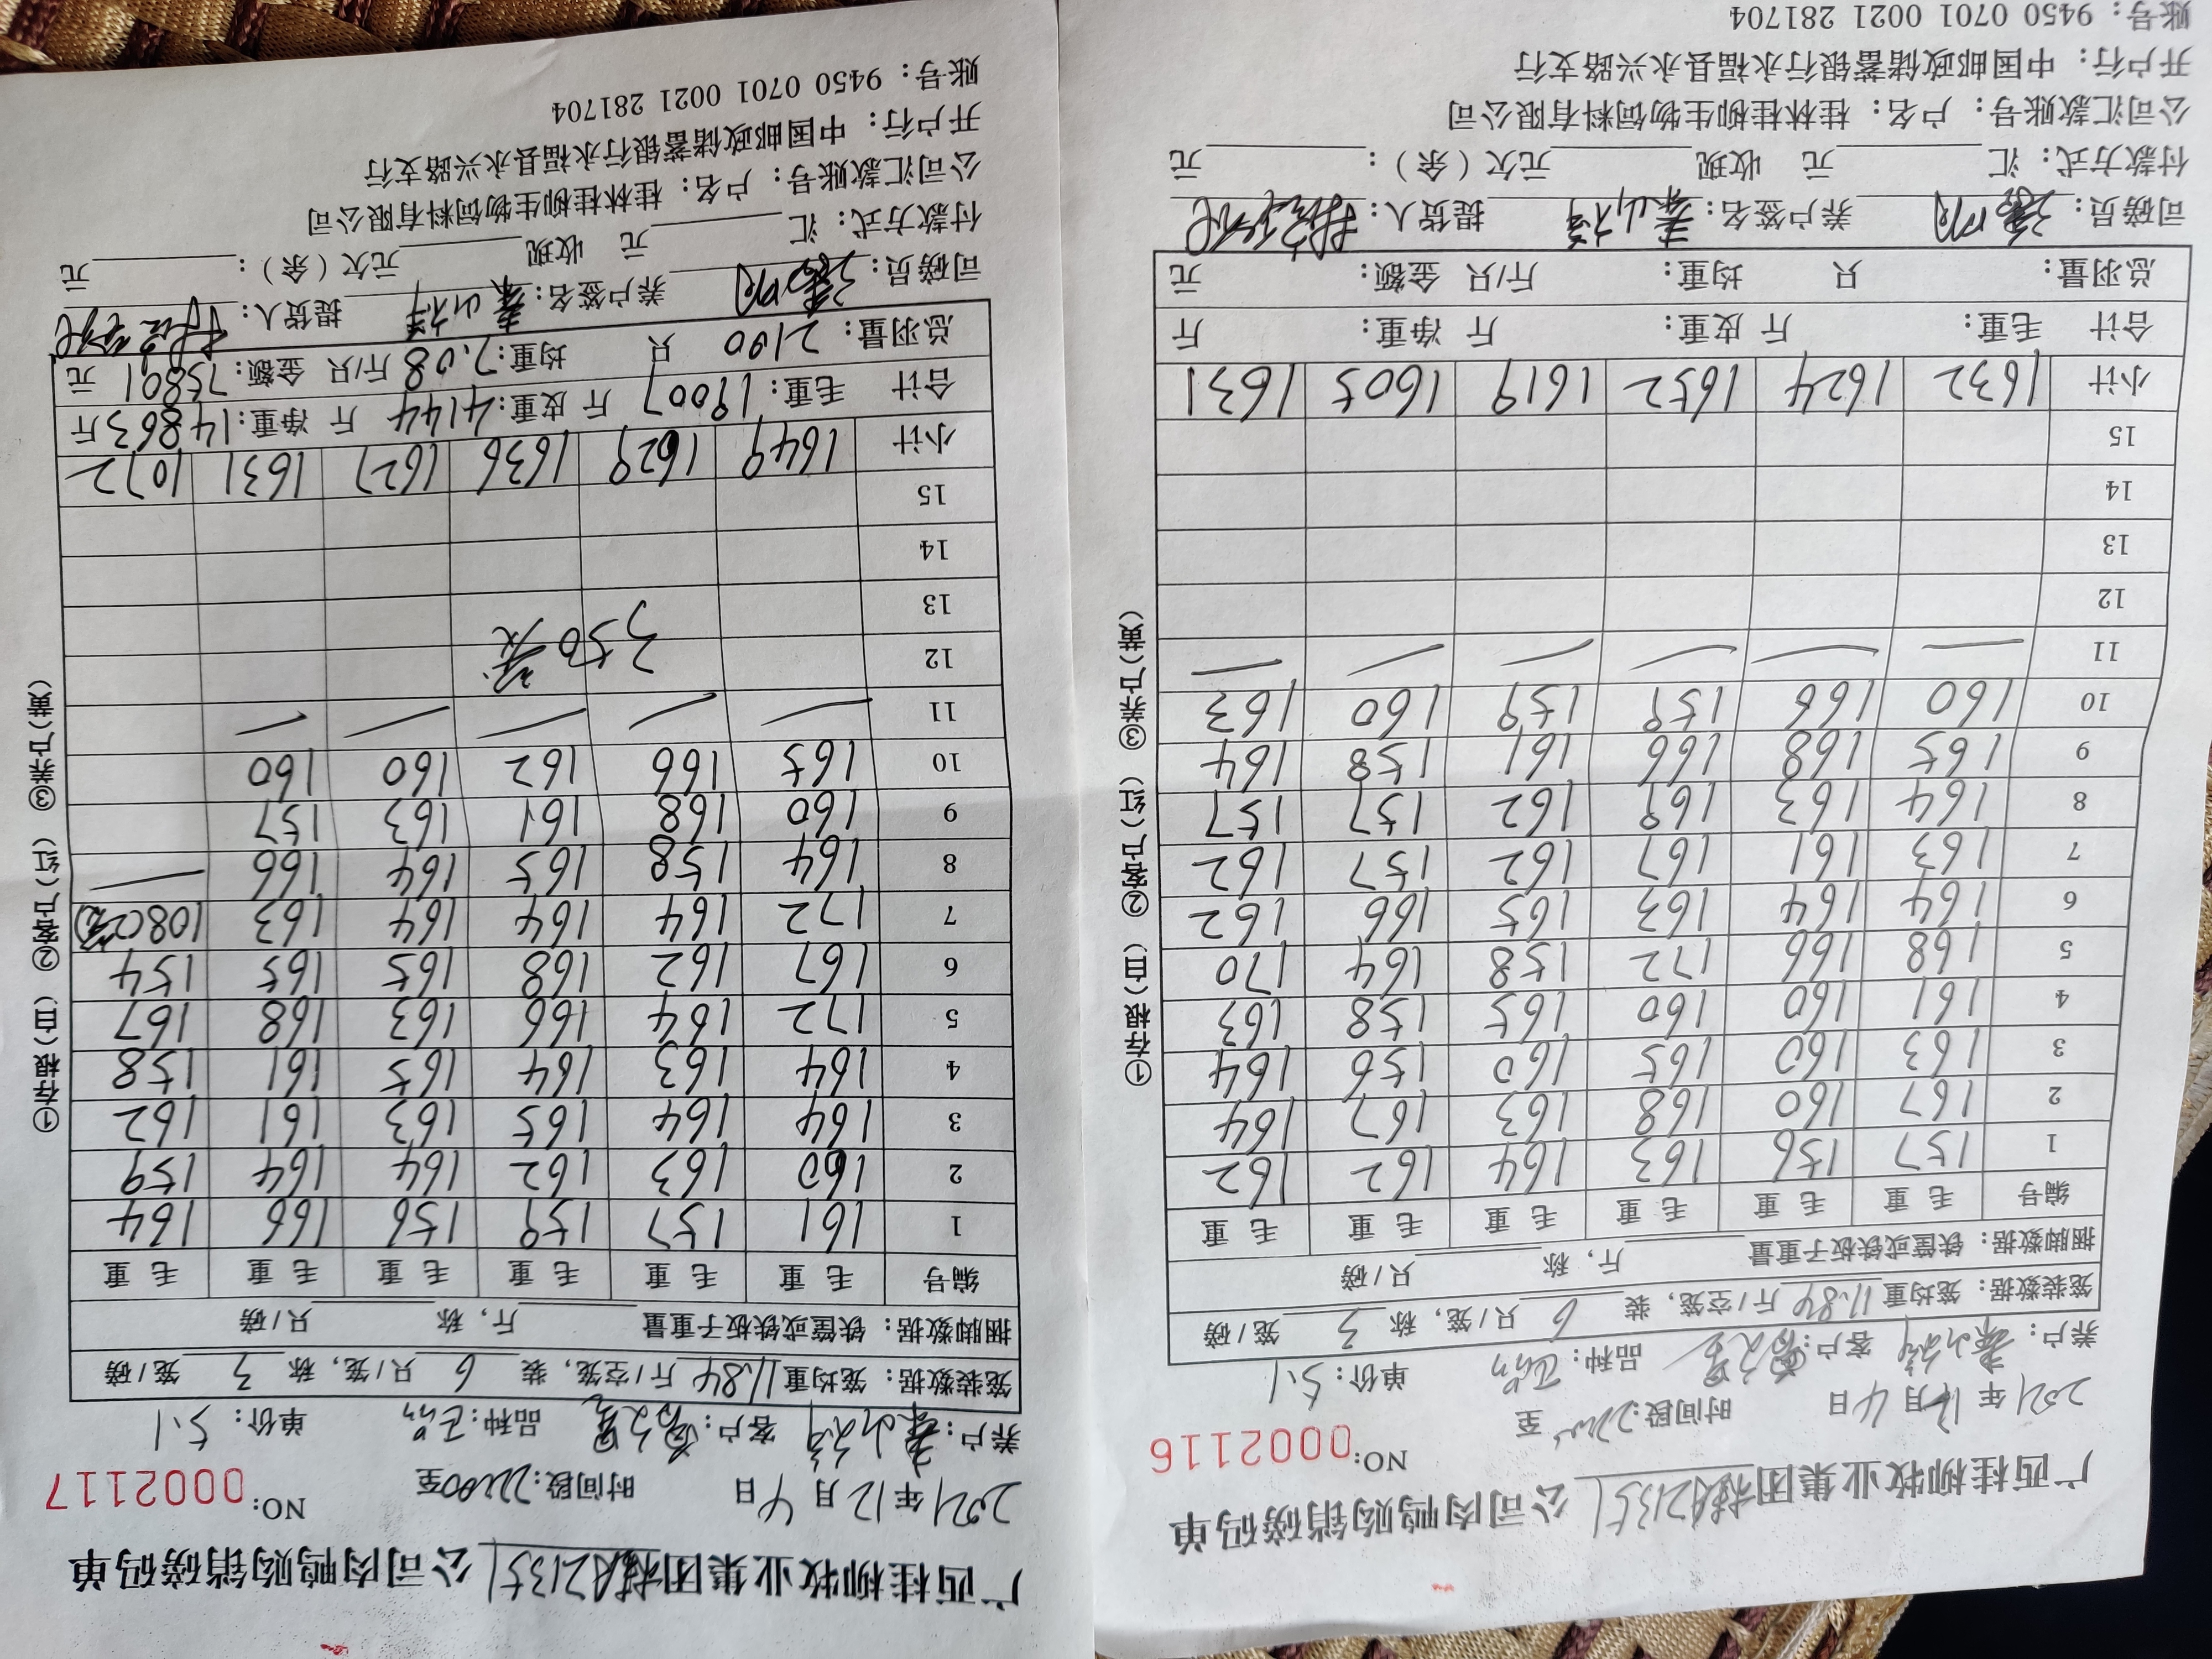 广西桂柳牧业集团 公司肉鸭购销磅码单
NO:0002116
2021年12月4日 时间段: 至
养户: 客户: 品种: 单价:5.1
笼装数据:笼均重11.84斤/空笼,装6只/笼,称3笼/磅
捆脚数据:铁筐或铁板子重量 斤,称 只/磅
编号 毛重 毛重 毛重 毛重 毛重 毛重
1 157 156 163 164 162 162
2 167 160 168 163 167 164
3 163 160 165 160 156 164
4 161 160 160 165 158 163
5 168 166 172 158 164 170
6 164 164 163 165 166 162
7 163 161 167 162 157 162
8 164 163 169 162 157 157
9 165 168 166 161 158 164
10 160 166 159 159 160 163
11 — — — — — —
12
13
14
15
小计 1632 1624 1652 1619 1605 1631
合计 毛重: 斤 皮重: 斤 净重: 斤
总羽量: 只 均重: 斤/只 金额: 元
司磅员: 养户签名: 提货人:
付款方式:汇 元 收现 元欠(余): 元
公司汇款账号:户名:桂林桂柳生物饲料有限公司
开户行:中国邮政储蓄银行永福县永兴路支行
账号:9450 0701 0021 281704
①存根(白) ②客户(红) ③养户(黄)
广西桂柳牧业集团 公司肉鸭购销磅码单
NO:0002117
2021年12月4日 时间段:22:00至
养户: 客户: 品种: 单价:5.1
笼装数据:笼均重11.84斤/空笼,装6只/笼,称3笼/磅
捆脚数据:铁筐或铁板子重量 斤,称 只/磅
编号 毛重 毛重 毛重 毛重 毛重 毛重
1 161 157 159 156 166 164
2 160 163 162 164 164 159
3 164 164 165 163 161 162
4 164 163 164 165 161 158
5 172 164 166 163 168 167
6 167 162 168 165 165 154
7 172 164 164 164 163 108(2笼)
8 164 158 165 164 166 —
9 160 168 161 163 157
10 165 166 162 160 160
11 — — — — —
12 350
13
14
15
小计 1649 1629 1636 1627 1631 1072
合计 毛重:19007斤 皮重:4144斤 净重:14863斤
总羽量:2100只 均重:7.08斤/只 金额:75801元
司磅员: 养户签名: 提货人:
付款方式:汇 元 收现 元欠(余): 元
公司汇款账号:户名:桂林桂柳生物饲料有限公司
开户行:中国邮政储蓄银行永福县永兴路支行
账号:9450 0701 0021 281704
①存根(白) ②客户(红) ③养户(黄)